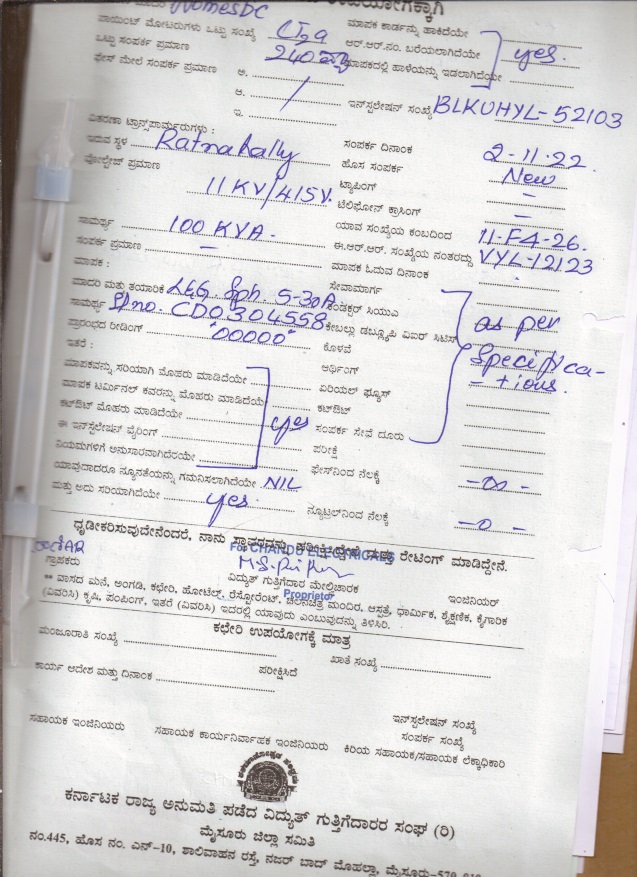 ಉಪಯೋಗಕ್ಕಾಗಿ
ಪಾಯಿಂಟ್ ಮೋಟರುಗಳು ಒಟ್ಟು ಸಂಖ್ಯೆ ಮಾಪಕ ಕಾರ್ಡನ್ನು ಹಾಕಿದೆಯೇ
ಒಟ್ಟು ಸಂಪರ್ಕ ಪ್ರಮಾಣ 240 ಆರ್.ಆರ್.ನಂ. ಬರೆಯಲಾಗಿದೆಯೇ yes.
ಫೇಸ್ ಮೇಲೆ ಸಂಪರ್ಕ ಪ್ರಮಾಣ ಅ. ಮಾಪಕದಲ್ಲಿ ಹಾಳೆಯನ್ನು ಇಡಲಾಗಿದೆಯೇ
ಆ. ಇನ್‌ಸ್ಟಲೇಷನ್ ಸಂಖ್ಯೆ BLKUHYL-52103
ಇ.
ವಿತರಣಾ ಟ್ರಾನ್ಸ್‌ಫಾರ್ಮರುಗಳು : ಸಂಪರ್ಕ ದಿನಾಂಕ 2-11-22.
ಇರುವ ಸ್ಥಳ Ratnahally ಹೊಸ ಸಂಪರ್ಕ New
ವೋಲ್ಟೇಜ್ ಪ್ರಮಾಣ 11KV/415V. ಟ್ಯಾಪಿಂಗ್ -
ಟೆಲಿಫೋನ್ ಕ್ರಾಸಿಂಗ್ -
ಸಾಮರ್ಥ್ಯ 100 KVA. ಯಾವ ಸಂಖ್ಯೆಯ ಕಂಬದಿಂದ 11-F4-26.
ಸಂಪರ್ಕ ಪ್ರಮಾಣ - ಈ.ಆರ್.ಆರ್. ಸಂಖ್ಯೆಯ ನಂತರದ್ದು VYL-12123
ಮಾಪಕ : ಮಾಪಕ ಓದುವ ದಿನಾಂಕ
ಮಾದರಿ ಮತ್ತು ತಯಾರಿಕೆ L&G 5-30A ಸೇವಾಮಾರ್ಗ
ಸಾಮರ್ಥ್ಯ Slno. CD0304558 ಕೇಬಲ್ಲು ಡಬ್ಲ್ಯೂಪಿ ವಿಐರ್ as per
ಪ್ರಾರಂಭದ ರೀಡಿಂಗ್ "00000" ಕೊಳವೆ Specifica-
ಇತರೆ : ಅರ್ಥಿಂಗ್ -tions.
ಮಾಪಕವನ್ನು ಸರಿಯಾಗಿ ಮೊಹರು ಮಾಡಿದೆಯೇ ಏರಿಯಲ್ ಫ್ಯೂಸ್
ಮಾಪಕ ಟರ್ಮಿನಲ್ ಕವರನ್ನು ಮೊಹರು ಮಾಡಿದೆಯೇ ಕಟ್‌ಔಟ್
ಕಟ್‌ಔಟ್ ಮೊಹರು ಮಾಡಿದೆಯೇ yes ಸಂಪರ್ಕ ಸೇವೆ ದೂರು
ಈ ಇನ್‌ಸ್ಟಲೇಷನ್ ವೈರಿಂಗ್ ಪರೀಕ್ಷೆ
ನಿಯಮಗಳಿಗೆ ಅನುಸಾರವಾಗಿದೆಯೇ ಫೇಸ್‌ನಿಂದ ನೆಲಕ್ಕೆ -∞-
ಯಾವುದಾದರೂ ನ್ಯೂನತೆಯನ್ನು ಗಮನಿಸಲಾಗಿದೆಯೇ NIL
ಮತ್ತು ಅದು ಸರಿಯಾಗಿದೆಯೇ yes. ನ್ಯೂಟ್ರಲ್‌ನಿಂದ ನೆಲಕ್ಕೆ -0-
ಧೃಡೀಕರಿಸುವುದೇನೆಂದರೆ, ನಾನು ಮತ್ತು ರೇಟಿಂಗ್ ಮಾಡಿದ್ದೇನೆ.
For CHANDU ELECTRICALS
ಗ್ರಾಹಕರು ವಿದ್ಯುತ್ ಗುತ್ತಿಗೆದಾರ ಮೇಲ್ವಿಚಾರಕ ಇಂಜಿನಿಯರ್
Proprietor
** ವಾಸದ ಮನೆ, ಅಂಗಡಿ, ಕಛೇರಿ, ಹೋಟೆಲ್, ರೆಸ್ಟೋರೆಂಟ್, ಚಲನಚಿತ್ರ ಮಂದಿರ, ಆಸ್ಪತ್ರೆ, ಧಾರ್ಮಿಕ, ಶೈಕ್ಷಣಿಕ, ಕೈಗಾರಿಕ
(ವಿವರಿಸಿ) ಕೃಷಿ, ಪಂಪಿಂಗ್, ಇತರೆ (ವಿವರಿಸಿ) ಇದರಲ್ಲಿ ಯಾವುದು ಎಂಬುವುದನ್ನು ತಿಳಿಸಿರಿ.
ಕಛೇರಿ ಉಪಯೋಗಕ್ಕೆ ಮಾತ್ರ
ಮಂಜೂರಾತಿ ಸಂಖ್ಯೆ ಖಾತೆ ಸಂಖ್ಯೆ
ಕಾರ್ಯ ಆದೇಶ ಮತ್ತು ದಿನಾಂಕ ಪರೀಕ್ಷಿಸಿದೆ
ಇನ್‌ಸ್ಟಲೇಷನ್ ಸಂಖ್ಯೆ
ಸಂಪರ್ಕ ಸಂಖ್ಯೆ
ಸಹಾಯಕ ಇಂಜಿನಿಯರು ಸಹಾಯಕ ಕಾರ್ಯನಿರ್ವಾಹಕ ಇಂಜಿನಿಯರು ಕಿರಿಯ ಸಹಾಯಕ/ಸಹಾಯಕ ಲೆಕ್ಕಾಧಿಕಾರಿ
ಕರ್ನಾಟಕ ರಾಜ್ಯ ಅನುಮತಿ ಪಡೆದ ವಿದ್ಯುತ್ ಗುತ್ತಿಗೆದಾರರ ಸಂಘ (ರಿ)
ಮೈಸೂರು ಜಿಲ್ಲಾ ಸಮಿತಿ
ನಂ.445, ಹೊಸ ನಂ. ಎನ್-10, ಶಾಲಿವಾಹನ ರಸ್ತೆ, ನಜರ್ ಬಾದ್ ಮೊಹಲ್ಲಾ, ಮೈಸೂರು-570 010